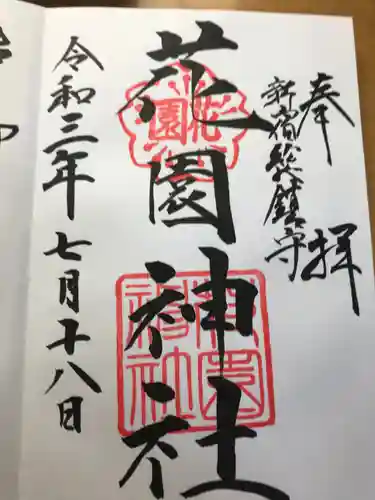 奉拝
新宿総鎮守
花園神社
令和三年七月十八日
花園
花園神社